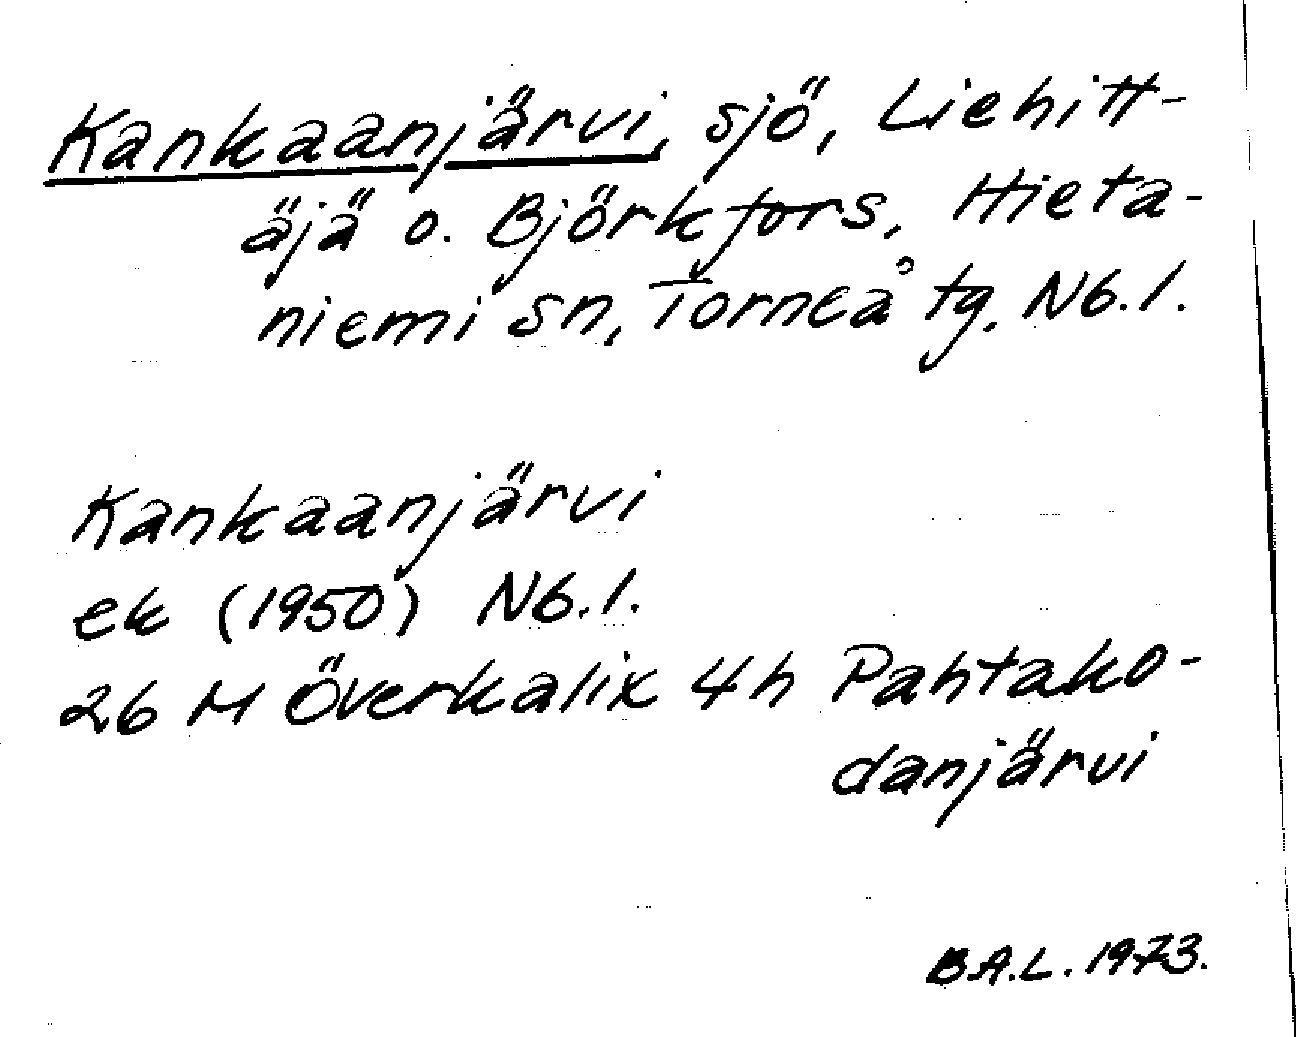 Kankaanjärvi, sjö, Liehitt-
äjä o. Björkfors, Hieta-
niemi sn, Torneå tg, Nb.l.
Kankaanjärvi
ek (1950) Nb.l.
26 M Överkalix 4h Pahtako-
danjärvi
B.A.L. 1973.